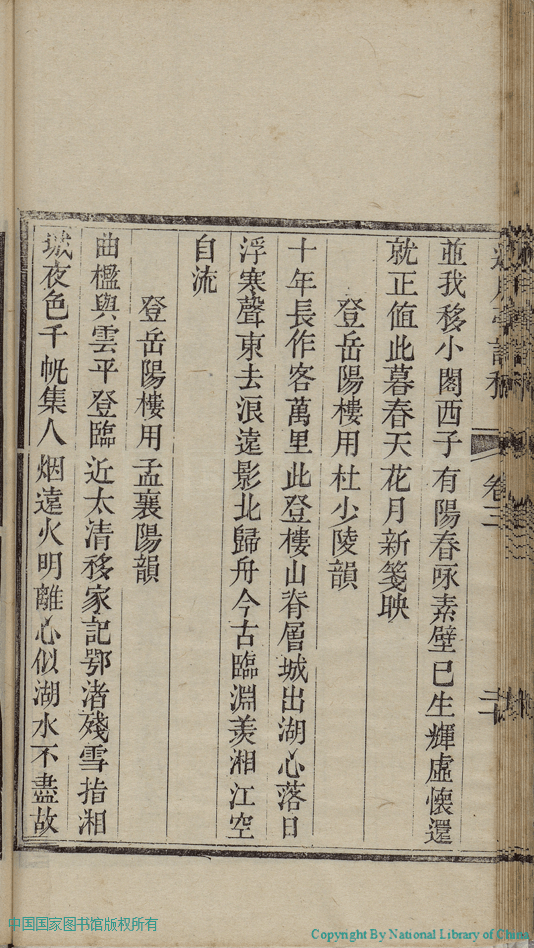 卷三
二十
並我移小閣西子有陽春咏素壁已生輝虛懷還
就正值此暮春天花月新箋映
登岳陽樓用杜少陵韻
十年長作客萬里此登樓山脊層城出湖心落日
浮寒聲東去浪遠影北歸舟今古臨淵羨湘江空
自流
登岳陽樓用孟襄陽韻
曲檻與雲平登臨近太清移家記鄂渚殘雪指湘
城夜色千帆集人烟遠火明離心似湖水不盡故
中国国家图书馆版权所有
Copyright By National Library of China